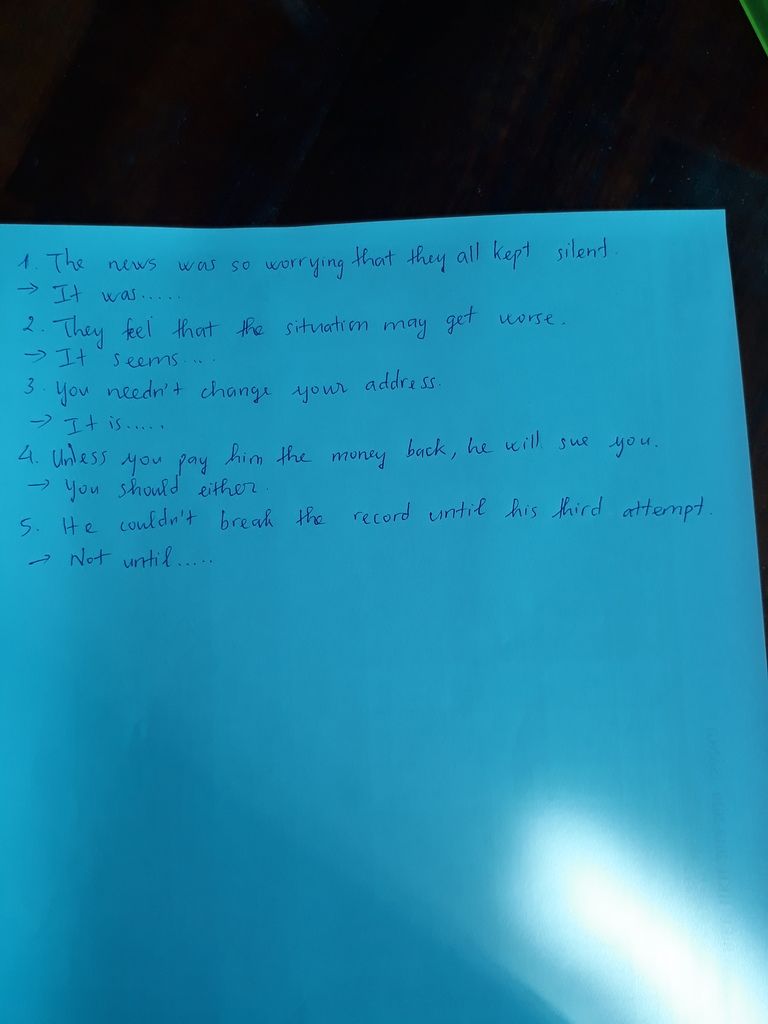 1. The news was so worrying that they all kept silent.
→ It was.....
2. They feel that the situation may get worse.
→ It seems....
3. You needn't change your address.
→ It is.....
4. Unless you pay him the money back, he will sue you.
→ You should either.
5. He couldn't break the record until his third attempt.
→ Not until.....